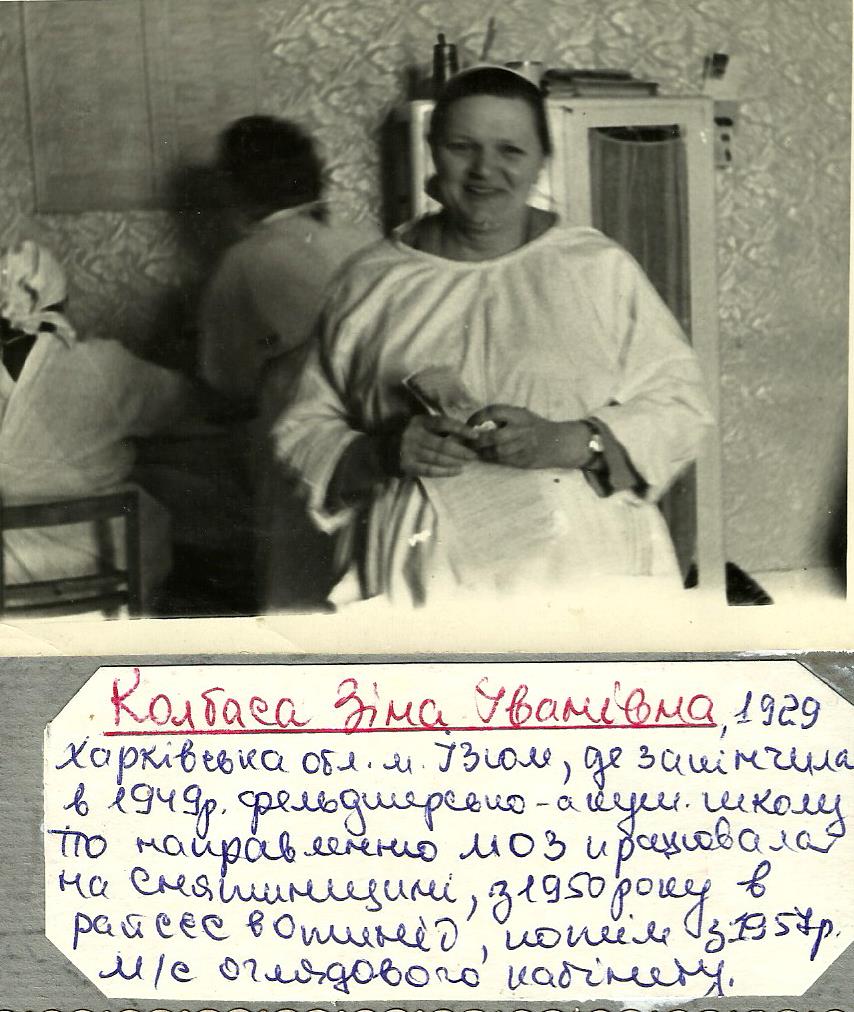 Колбаса Зіна Іванівна, 1929
Харківська обл. м. Ізюм, де закінчила
в 1949р. фельдшерсько-акуш. школу
По направленню МОЗ працювала
на Снятинщині, з 1950 року в
райсес
, потім з 1957р.
м/с оглядового кабінету.